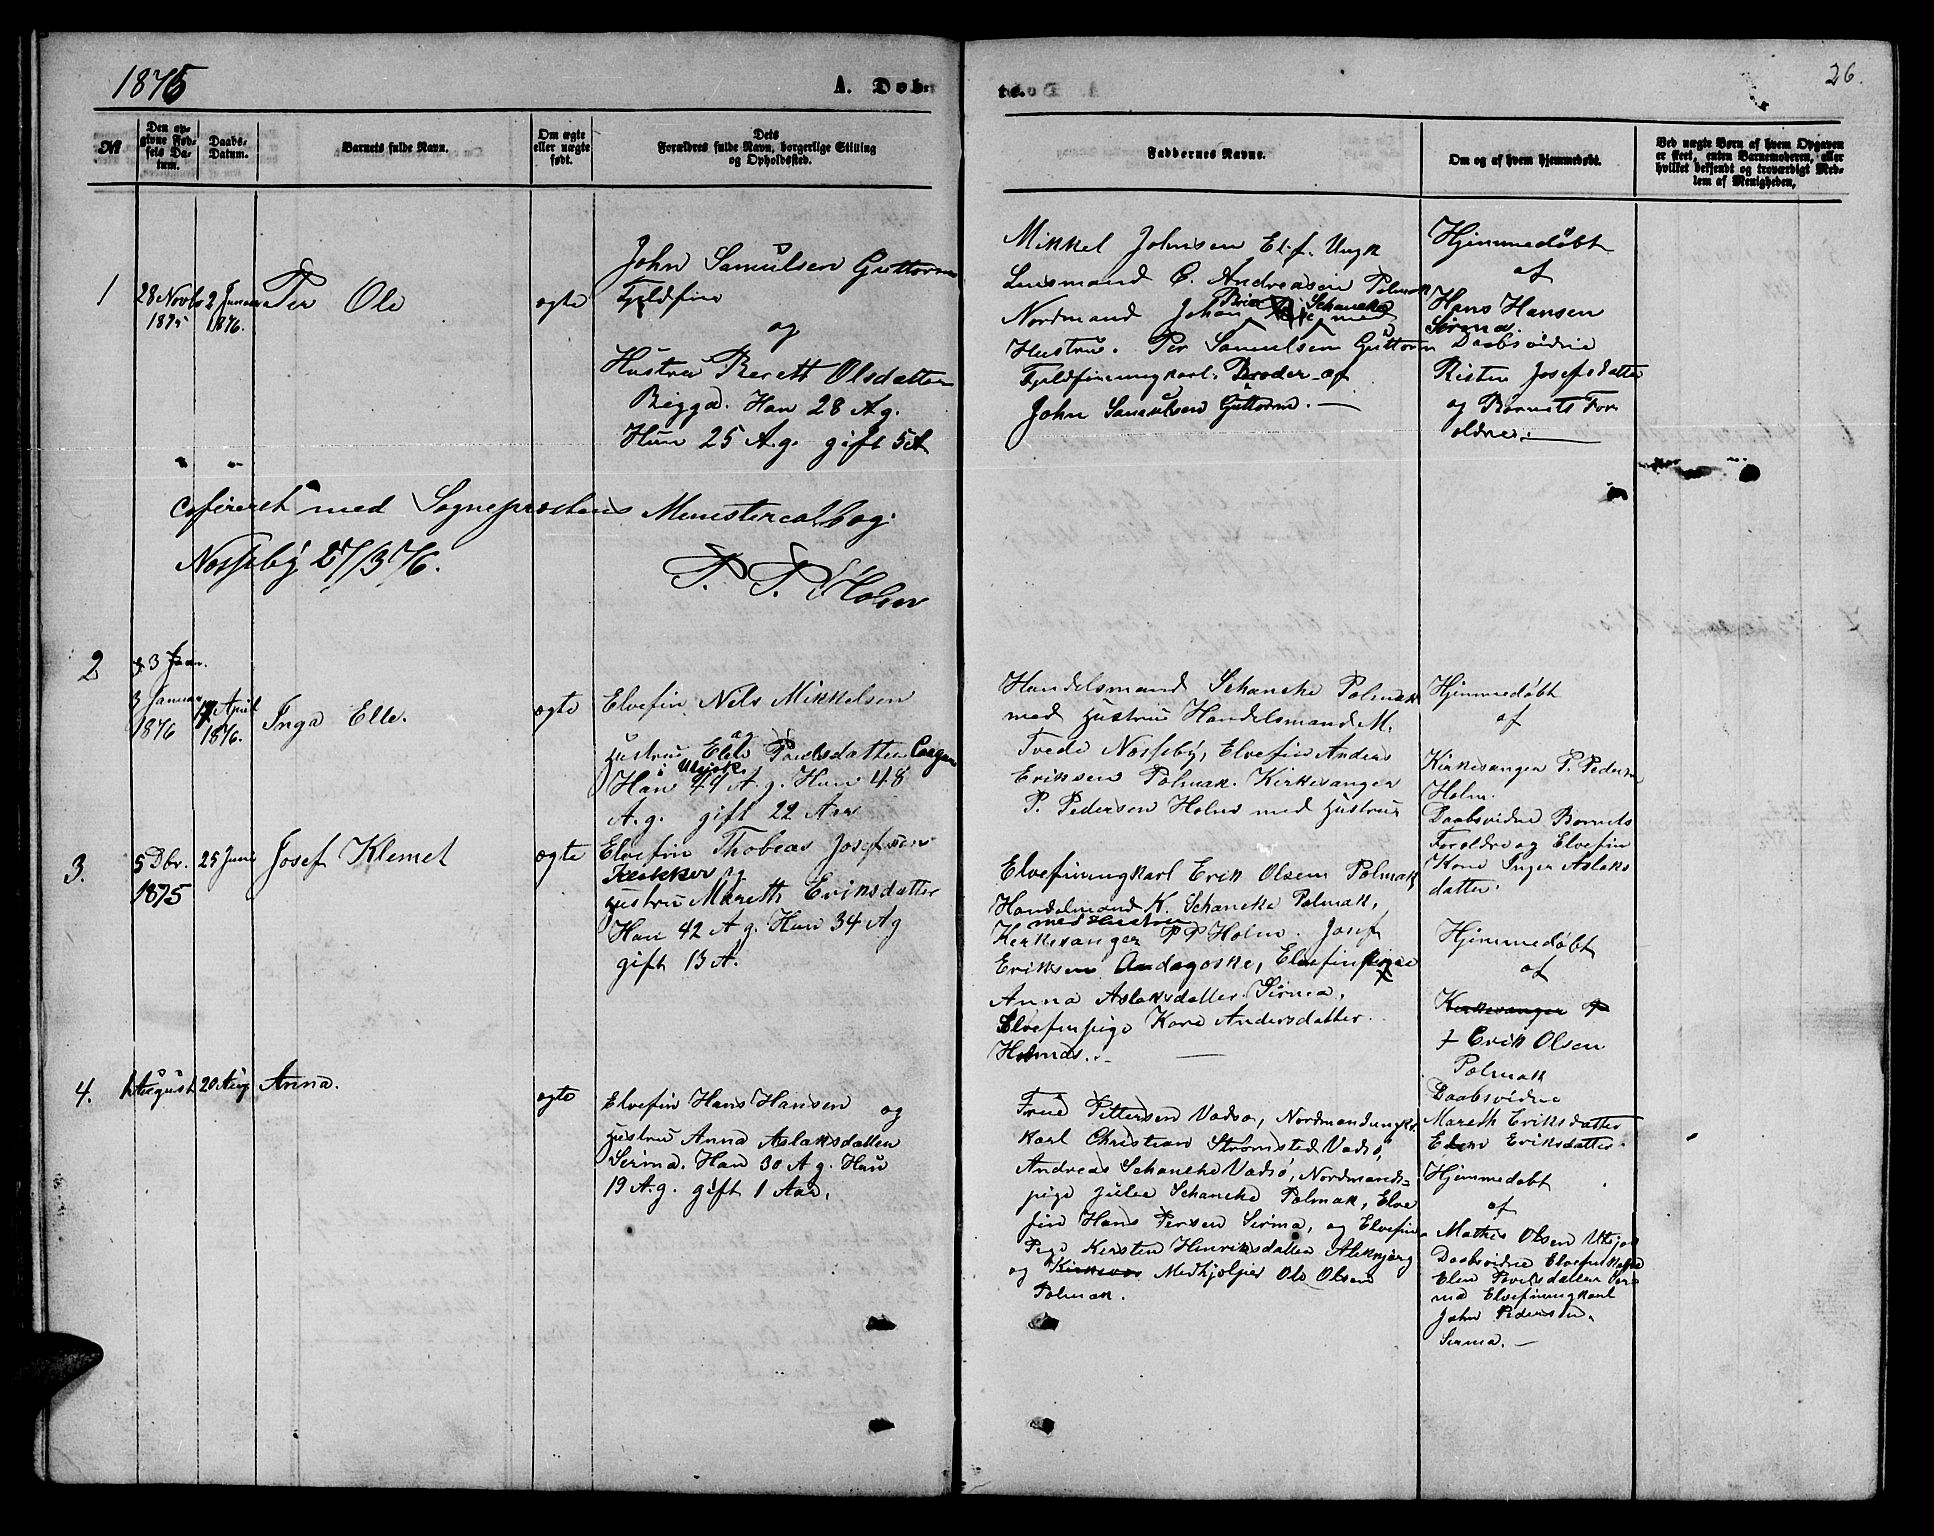 1876
A. Døb-
te.
26.
№
Den op-
givne Fød-
sels Da-
tum.
Daabs-
Datum.
Barnets fulde Navn.
Om ægte
eller uægte
født.
Dets
Forældres fulde Navn, borgerlige Stilling
og Opholdssted.
Faddernes Navne.
Om og af hvem hjemmedøbt.
Ved uægte Børn af hvem Opgaven
er skeet, enten Barnemoderen, eller
hvilket bekjendt og troværdigt Med-
lem af Menigheden.
1
28 Novbr
1875
2 Januar
1876.
Per Ole
ægte
John Samulsen Guttorm
Fjeldfin
og
Hustru Berett Olsdatter
Bigga. Han 28 A.g.
Hun 25 A.g. gift 5 A
Mikkel Johnsen El.f. Utsjk
Lensmand C. Andreasen Polmak
Nordmand Johan Brica Schancke med
Hustru. Per Samulsen Guttorm
Fjeldfinungkarl. Broder af
John Samulsen Guttorm.
Hjemmedøbt
af
Hans Hansen
Sirma.
Daabsvidne
Risten Josefsdatter
og Barnets For
ældre.
Cofereret med Sognepræstens Menestereal bog.
Næsseby 27/3 76.
P. P. Holm
2
3 Jan.
3 Januar
1876
17 April
1876.
Inga Elle.
ægte
Elvefin Nils Mikkelsen
og
Hustru Elle Poulsdatter
Utsjok
Han 49 A.g. Hun 48
A.g. gift 22 Aar
Handelsmand Schancke Polmak
med Hustru Handelsmand M.
Tvede Næsseby, Elvefin Anders
Eriksen Polmak. Kirkesanger
P. Pedersen Holm med Hustru
Hjemmedøbt
af
Kirkesanger P. Pedersen
Holm.
Daabsvidne Barnets
Foreldre og Elvefin
Kone Inger Aslaks
datter.
3.
5 Dbr.
1875
25 Juni
Josef Klemet
ægte
Elvefin Thobeas Josefsen
og
Hustru Mareth Eriksdatter
Han 42 A.g. Hun 34 A g
gift 13 A.
Elvefinungkarl Erik Olsen Polmak
Handelmand K. Schancke Polmak,
med Hustru
Kerkesanger P P Holm. Josef
Eriksen Andagoske, Elvefinpige
Anna Aslaksdatter. Sirma,
Elvefinpige Kare Andersdatter.
Holmas.
Hjemmedøbt
af
Kerkesanger
Erik Olsen
Polmak
Daabsvidne
Mareth Eriksdatter
Elen Eriksdatter.
4.
1 August
20 Aug
Anna.
ægte
Elvefin Hans Hansen og
Hustru Anna Aslaksdatter
Serma. Han 30 A g. Hun
19 A.g. gift 1 Aar.
Frue Pettersen Vadsø, Nordmandungk.
karl Christian Strømsted Vadsø,
Andreas Schancke Vadsø, Nordmands=
pige Julie Schancke Polmak, Elve
fin Hans Persen Sirma, og Elvefin
Pige Kersten Henriksdatter Aleknjarg
og Kirkevær Medhjælper Ole Olsen
Polmak.
Hjemmedøbt
af
Mathis Olsen Utsjok
Daabsvidne Elvefinkone
Elen Povelsdatter Ser-
ma Elvefinungkarl
John Pedersen.
Serma.